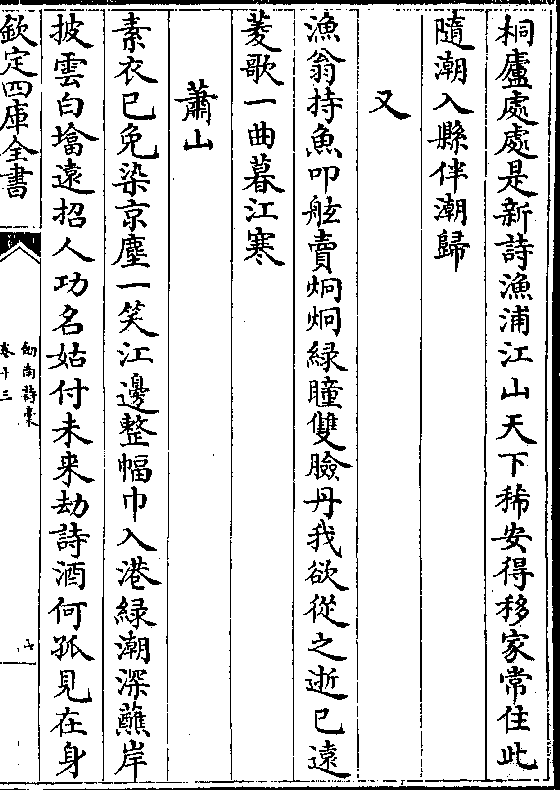 桐廬處處是新詩漁浦江山天下稀安得移家常住此
隨潮入縣伴潮歸
又
漁翁持魚叩舷賣炯炯綠瞳雙臉丹我欲從之逝已遠
菱歌一曲暮江寒
蕭山
素衣已免染京塵一笑江邊整幅巾入港綠潮深蘸岸
披雲白墖遠招人功名姑付未来劫詩酒何孤見在身
欽定四庫全書
劍南詩稾
卷十三
七